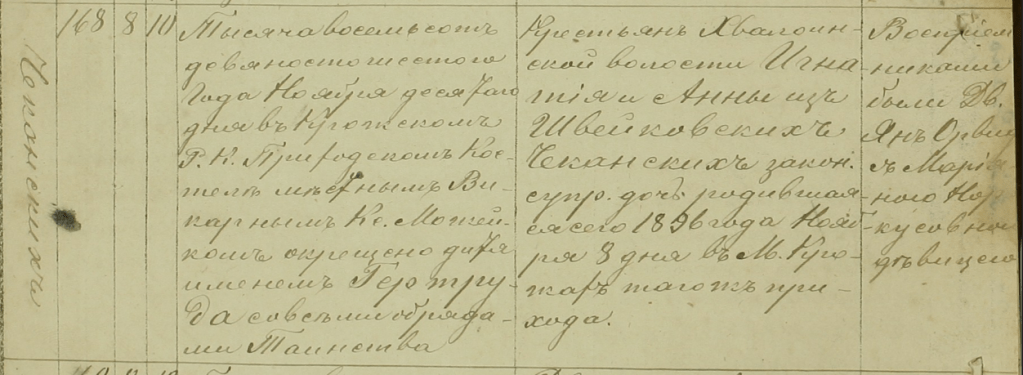 Чеканскихъ
168 8 10
Тысяча восемьсотъ
девяностошестого
года Ноября десятаго
дня въ Крожскомъ
Р. К. Приходскомъ Кос-
телѣ мѣстнымъ Ви-
карнымъ Кс. Можей-
комъ окрещено дитя
именемъ Гертру-
да совсѣми обряда-
ми Таинства
Крестьянъ Хвалоин-
ской волости Игна-
тія и Анны изъ
Швейковскихъ
Чеканскихъ закон.
супр. дочь родившая-
ся сего 1896 года Нояб-
ря 8 дня въ М. Кро-
жахъ тогожъ при-
хода.
Воспріем-
никами
были Дв.
Янъ
съ
дѣвицею